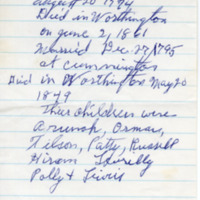 August 20 1774
Died in Worthington
on June 2, 1861
Married Dec. 27, 1795
at Cummington
Died in Worthington May 20
1849
Their children were
Arunah, Orman,
Nelson, Patty, Russell
Hiram
Polly & Lewis